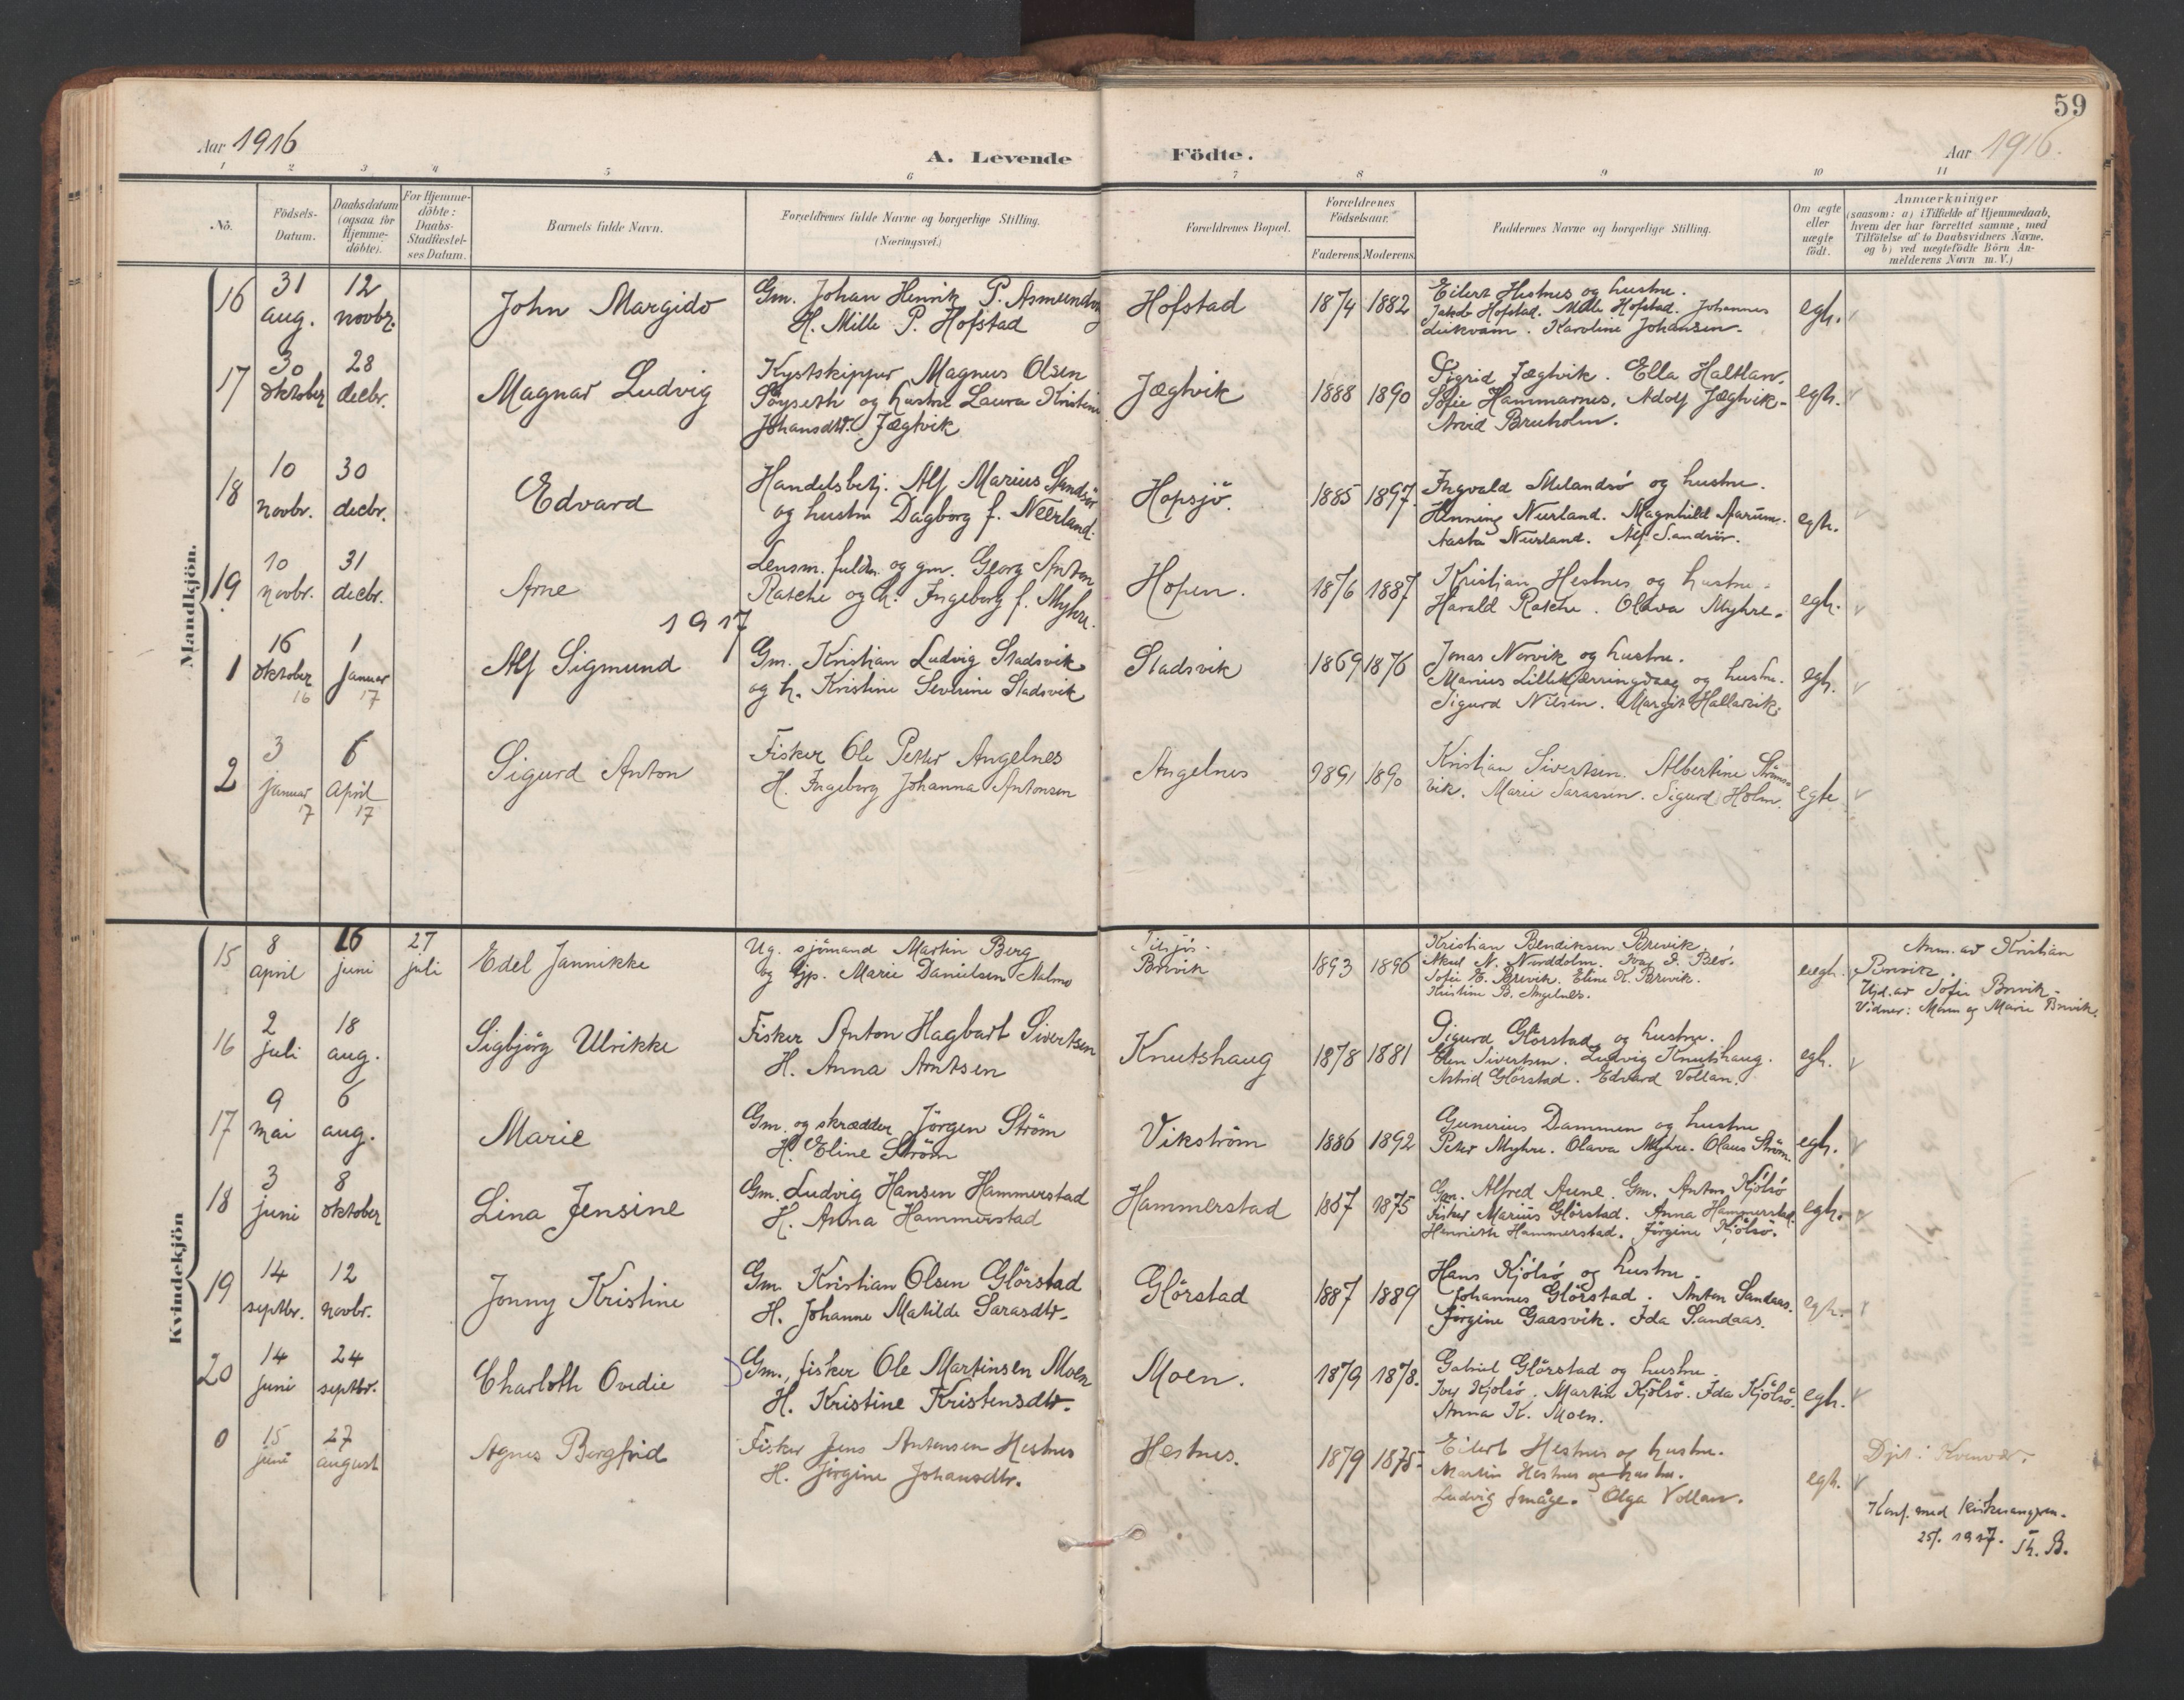 59
Aar 1916
A. Levende Födte.
Aar 1916.
1 2 3 4 5 6 7 8 9 10 11
No.
Födsels-Datum.
Daabsdatum (ogsaa for Hjemme-döbte).
For Hjemme-döbte: Daabs-Stadfæstel-ses Datum.
Barnets fulde Navn.
Forældrenes fulde Navne og borgerlige Stilling.
(Næringsvei.)
Forældrenes Bopæl.
Forældrenes Födselsaar.
Faderens. Moderens.
Faddernes Navne og borgerlige Stilling.
Om ægte eller uægte födt.
Anmærkninger
(saasom: a) i Tilfælde af Hjemmedaab, hvem der har forrettet samme, med Tilföielse af to Daabsvidners Navne, og b) ved uægtefödte Börn An-melderens Navn m. V.)
Mandkjön.
16 31 aug. 12 novbr. John Margido
Gm. Johan Henrik P. Asmundvåg
H. Mille P. Hofstad
Hofstad 1874 1882
Eilert Hestnes og hustru.
Jakob Hofstad. Mille Hofstad. Johannes
Lukvam. Karoline Johansen.
egh.
17 30 oktober 28 decbr. Magnar Ludvig
Kystskipper Magnus Olsen
Söyseth og hustru Laura Kristine
Johansdtr. Jægtvik
Jægtvik 1888 1890
Sigrid Jægtvik. Ella Haltlan.
Sofie Hammarnes. Adolf Jægtvik.
Arvid Bruholm.
egh.
18 10 novbr. 30 decbr. Edvard
Handelsbetj. Alf Marius Sandsör
og hustru Dagborg f. Neerland.
Hopsjö. 1885 1897.
Ingvald Melandsö og hustru.
Henning Neerland. Magnhild Aarum.
Aasta Neerland. Alf Sandsör.
egh.
19 10 novbr. 31 decbr. Arne
Lensm. fuldm. og gm. Georg Anton
Rasche og h. Ingeborg f. Myhre.
Hopen. 1876 1887
Kristian Hestnes og hustru.
Harald Rasche. Olava Myhre.
egh.
1917
1 16 oktober 16 1 januar 17 Alf Sigmund
Gm. Kristian Ludvig Stadsvik
og h. Kristine Severine Stadsvik
Stadsvik 1869 1876
Jonas Norvik og hustru.
Marius Lillekjærringvaag og hustru.
Sigurd Nilsen. Margit Hallarvik.
egh.
2 3 januar 17 6 april 17 Sigurd Anton
Fisker Ole Petter Angelnes
H. Ingeborg Johanna Antonsen
Angelnes 1891 1890
Kristian Sivertsen. Albertine Ströms-
vik. Marie Sarassen. Sigurd Holm.
egte
Kvindekjön
15 8 april 16 juni 27 juli Edel Jannikke
Ug. sjömand Martin Berg
og pp. Marie Danielsen Malmo
Brevik 1893 1896
Kristian Bendiksen Brevik.
Aksel N. Norddolm. Ivar I. Beö.
Sofie E. Brevik. Eline K. Brevik.
Kristine B. Angelnes.
uegh.
Anm. av Kristian
Brevik.
Hjd. av Sofie Brevik.
Vidner: Mosm og Marie Brevik.
16 2 juli 18 aug. Sigbjörg Ulrikke
Fisker Anton Hagbart Sivertsen
H. Anna Arntsen
Knutshaug 1878 1881
Sigurd Glörstad og hustru.
Elen Sivertsen. Ludvig Knutshaug.
Astrid Glörstad. Edvard Vollan.
egh.
17 9 mai 6 aug. Marie
Gm. og skrædder Jörgen Ström
H. Eline Ström
Vikström 1886 1892
Gunerius Dammen og hustru
Peter Myhre. Olava Myhre. Olaus Ström.
egh.
18 3 juni 8 oktober Lina Jensine
Gm. Ludvig Hansen Hammerstad
H. Anna Hammerstad
Hammerstad 1867 1875
Gm. Alfred Aune. Gm. Anton Kjölsö
Fisker Marius Glörstad. Anna Hammerstad.
Henriette Hammerstad. Jörgine Kjölsö.
egh.
19 14 septbr. 12 novbr. Jonny Kristine
Gm. Kristian Olsen Glörstad
H. Johanne Matilde Sarasdtr.
Glörstad 1887 1889
Hans Kjölsö og hustru.
Johannes Glörstad. Anton Sandaas.
Jörgine Gaasvik. Ida Sandaas.
egh.
20 14 juni 24 septbr. Charloth Ovedie
Gm., fisker Ole Martinsen Moen
H. Kristine Kristensdtr.
Moen. 1879 1878.
Gabriel Glörstad og hustru.
Ivar Kjölsö. Martin Kjölsö. Ida Kjölsö.
Anna K. Moen.
egh.
0 15 juni 27 august Agnes Bergfrid
Fisker Jens Antonsen Hestnes
H. Jörgine Johansdtr.
Hestnes. 1879 1875
Eilert Hestnes og hustru.
Martin Hestnes og hustru.
Ludvig Småge. Olga Vollan.
egh.
Döpt i Kvenvær.
Konf. med kirkesangeren.
25/1 1917. Th. B.